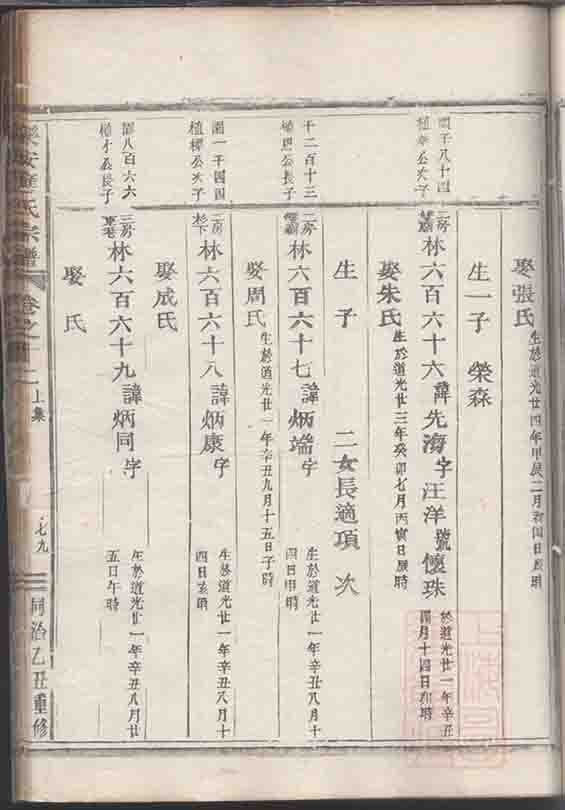 娶張氏
生於道光廿四年甲辰二月初四日辰時
生一子 榮森
植
公次子
二房
林六百六十六諱先海字汪洋號懷珠
於道光廿一年辛丑
四月十四日卯時
娶朱氏
生於道光廿三年癸卯七月丙寅日辰時
生子 二女長適項 次
千二百十三
植
公長子
二房
林六百六十七諱炳端字
生於道光廿一年辛丑八月十
四日申時
娶周氏
生於道光廿一年辛丑九月十五日子時
圖一千四四
植樟公次子
二房
杉下
林六百六十八諱炳康字
生於道光廿一年辛丑八月十
四日亥時
娶成氏
圖八百六六
植
公長子
三房
林六百六十九諱炳同字
生於道光廿一年辛丑八月廿
五日午時
娶 氏
樂安
氏宗譜
卷之十二
上集
七九
同治乙丑重修
上海